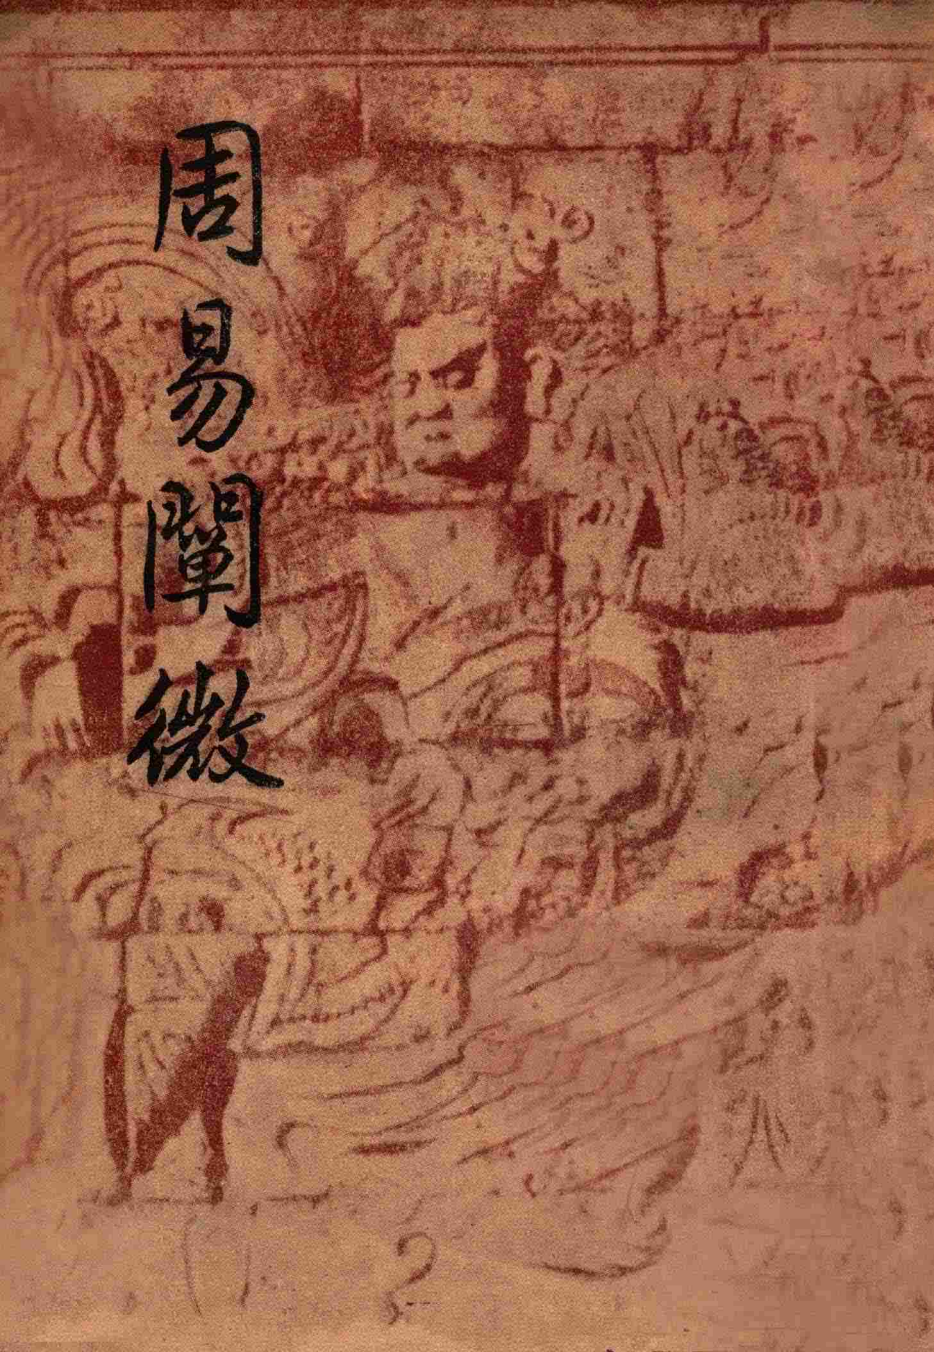 周易闡微